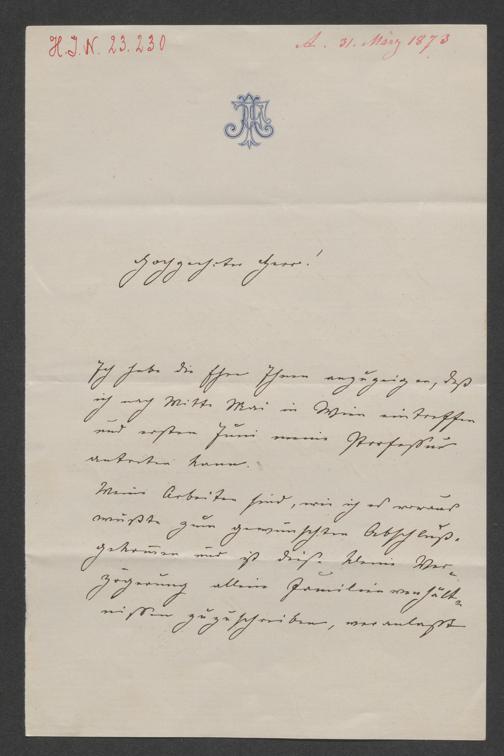 H.I.N. 23.230
A. 31. März 1873
Hochgeehrter Herr!
Ich habe die Ehre Ihnen anzuzeigen, daß
ich nach Mitte Mai in Wien eintreffen
und ersten Juni meine Professur
antreten kann.
Meine Arbeiten sind, wie ich es voraus
wußte zum gewünschten Abschluß
gekommen und ist diese kleine Ver-
zögerung allein Familienverhält-
nissen zuzuschreiben, veranlaßt